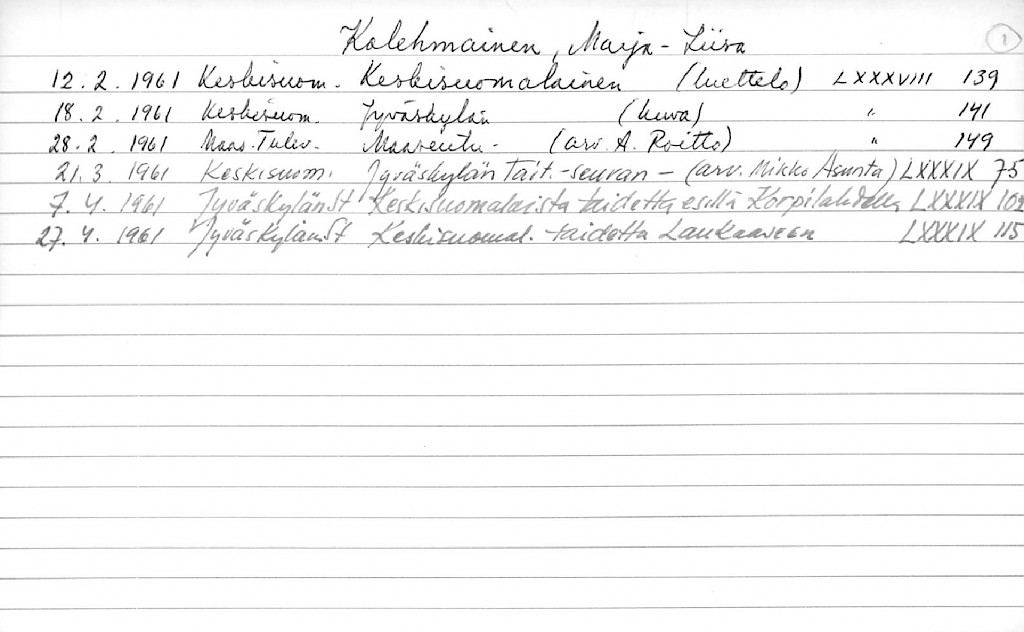 Kolehmainen, Maija-Liisa 1
12.2.1961 Keskisuom. Keskisuomalainen (luettelo) LXXXVIII 139
18.2.1961 Keskisuom. Jyväskylän (kuva) " 141
28.2.1961 Maas. Tulev. Maaseutu- (arv. A. Roitto) " 149
21.3.1961 Keskisuom. Jyväskylän Tait.-seuran - (arv. Mikko Asunta) LXXXIX 75
7.4.1961 Jyväskylän St Keskisuomalaista taidetta esillä Korpilahdella LXXXIX 102
27.4.1961 Jyväskylän St Keskisuomal. taidetta Laukaaseen LXXXIX 115